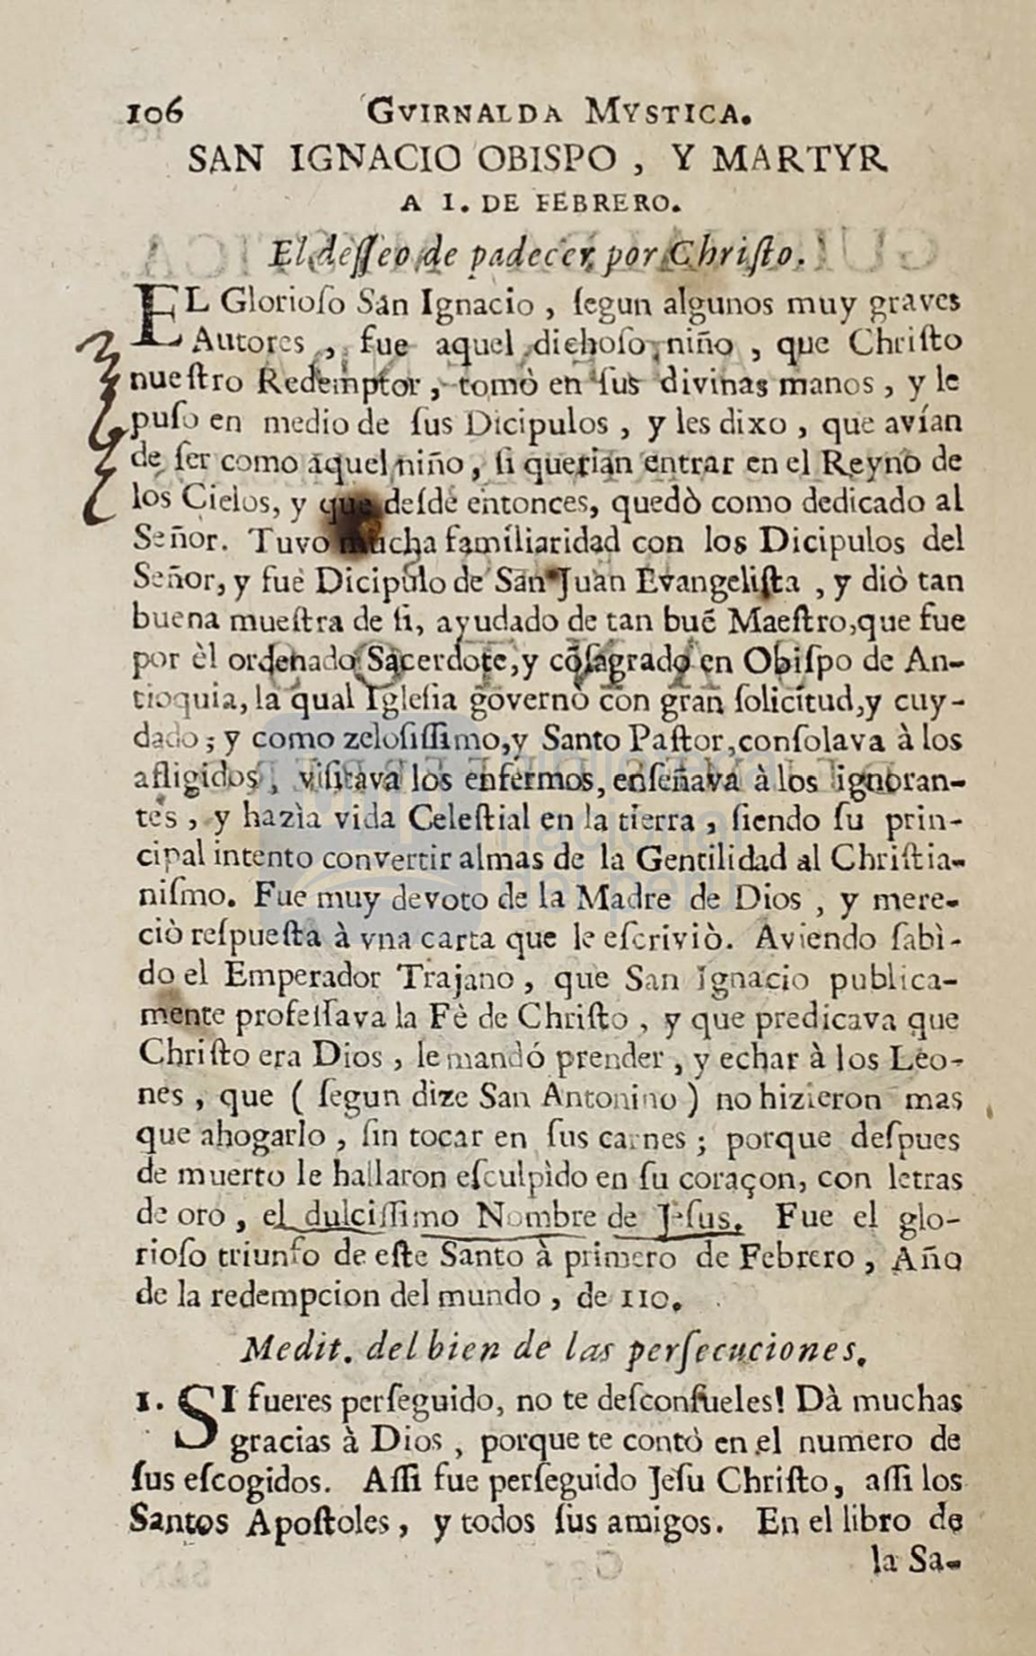 106 GVIRNALDA MYSTICA.
SAN IGNACIO OBISPO , Y MARTYR
A I. DE FEBRERO.
El desſeo de padecer por Chriſto.
EL Glorioſo San Ignacio , ſegun algunos muy graves
Autores , fue aquel dichoſo niño , que Chriſto
nueſtro Redemptor , tomò en ſus divinas manos , y le
puſo en medio de ſus Dicipulos , y les dixo , que avían
de ſer como aquel niño , ſi querian entrar en el Reyno de
los Cielos, y que deſde entonces, quedò como dedicado al
Señor. Tuvo mucha familiaridad con los Dicipulos del
Señor, y fue Dicipulo de San Juan Evangeliſta , y diò tan
buena mueſtra de ſi, ayudado de tan buẽ Maeſtro,que fue
por èl ordenado Sacerdote,y cõſagrado en Obiſpo de An-
tioquia, la qual Igleſia governò con gran ſolicitud,y cuy-
dado ; y como zeloſiſſimo,y Santo Paſtor,conſolava à los
afligidos , viſitava los enfermos, enſeñava à los ignoran-
tes , y hazìa vida Celeſtial en la tierra , ſiendo ſu prin-
cipal intento convertir almas de la Gentilidad al Chriſtia-
niſmo. Fue muy devoto de la Madre de Dios , y mere-
ciò reſpueſta à vna carta que le eſcriviò. Aviendo ſabì-
do el Emperador Trajano , que San Ignacio publica-
mente profeſſava la Fè de Chriſto , y que predicava que
Chriſto era Dios , le mandó prender , y echar à los Leo-
nes , que ( ſegun dize San Antonino ) no hizieron mas
que ahogarlo , ſin tocar en ſus carnes ; porque deſpues
de muerto le hallaron eſculpìdo en ſu coraçon, con letras
de oro , el dulciſſimo Nombre de Jeſus. Fue el glo-
rioſo triunfo de eſte Santo à primero de Febrero , Año
de la redempcion del mundo , de 110.
Medit. del bien de las perſecuciones.
1. SI fueres perſeguido, no te deſconſueles! Dà muchas
gracias à Dios , porque te contò en el numero de
ſus eſcogidos. Aſſi fue perſeguido Jeſu Chriſto, aſſi los
Santos Apoſtoles, y todos ſus amigos. En el libro de
la Sa-
biblioteca
nacional
del perú